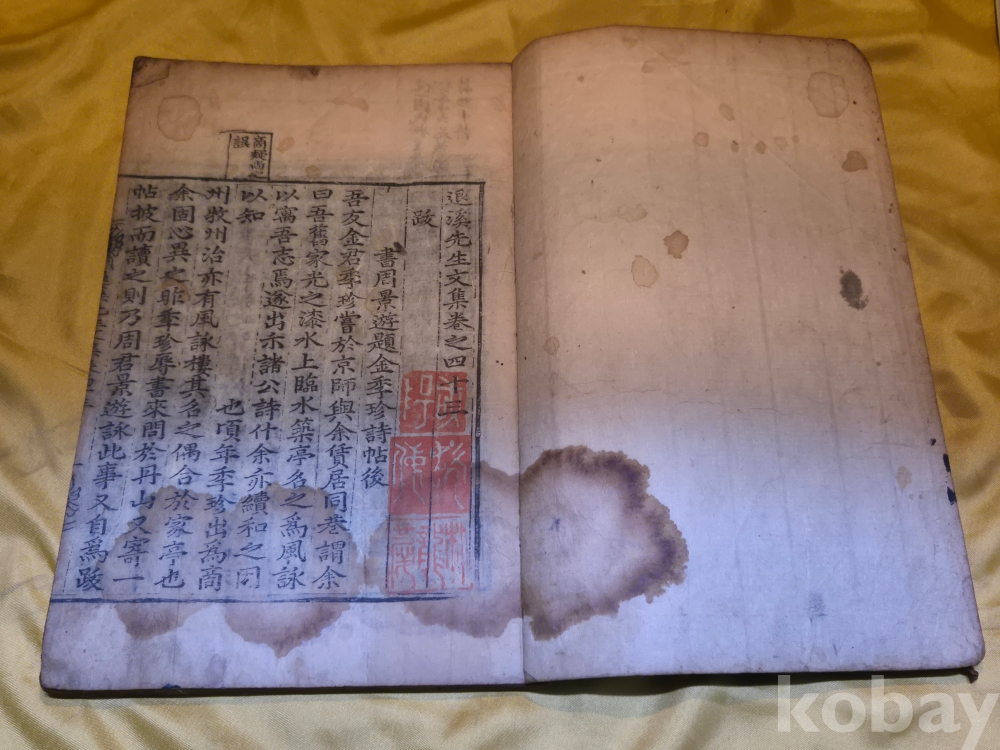 退溪先生文集卷之四十三
跋
書周景遊題金季珍詩帖後
吾友金君季珍嘗於京師與余賃居同巷謂余
曰吾舊家光之漆水上臨水築亭名之爲風詠
以寓吾志焉遂出示諸公詩什余亦續和之同
以知 也頃年季珍出爲商
州教州治亦有風詠樓其名之偶合於家亭也
余固心異之昨季珍辱書來問於丹山又寄一
帖披而讀之則乃周君景遊詠此事又自爲跋
誤
kobay